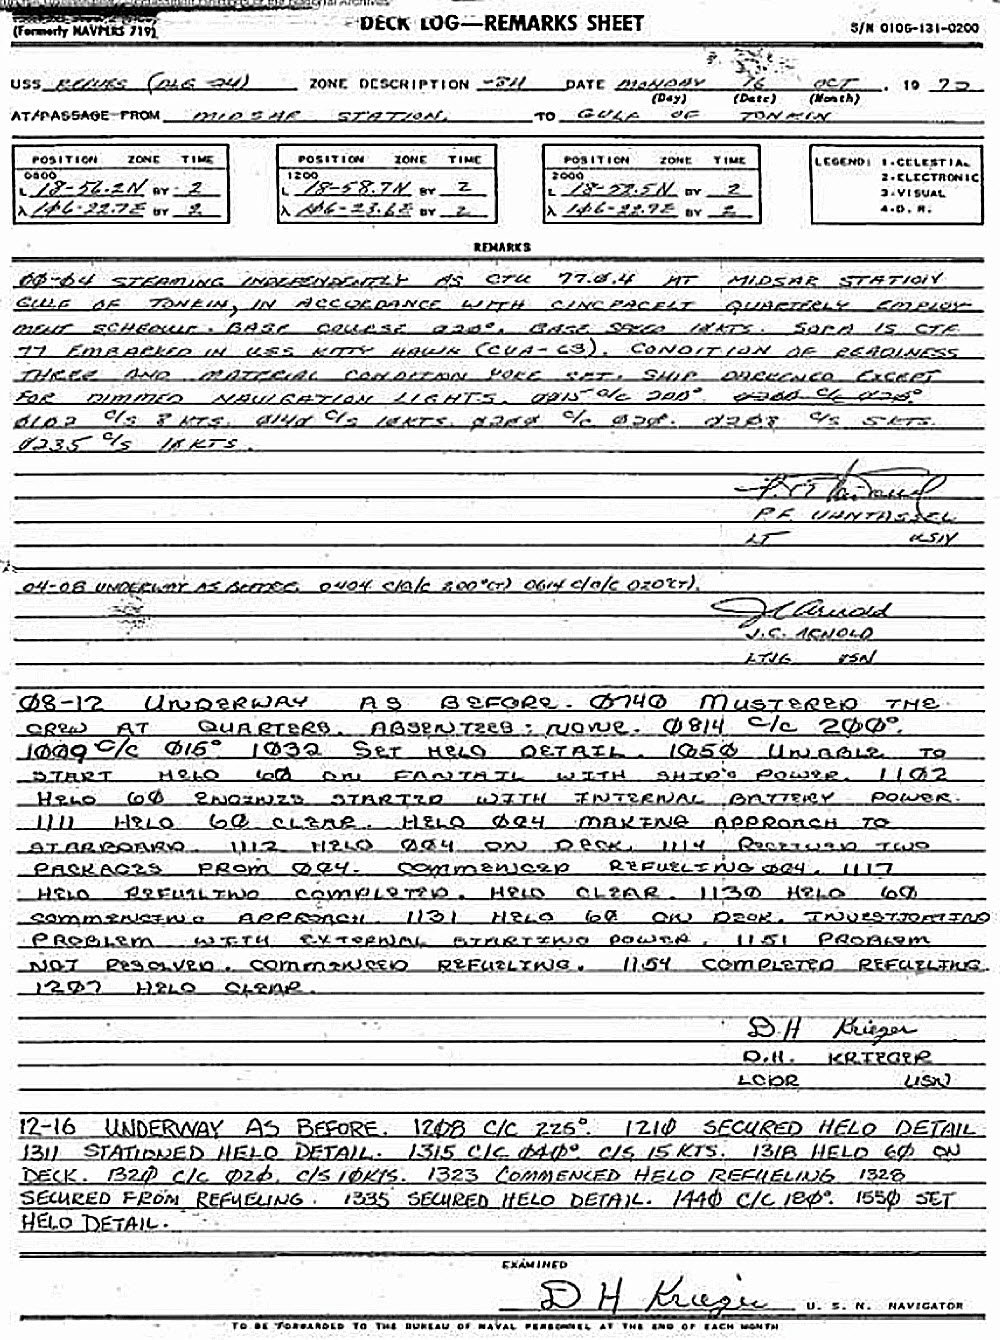 (Formerly NAVPERS 719)
DECK LOG—REMARKS SHEET
S/N 0106-131-0200
USS REEVES (DLG-24) ZONE DESCRIPTION -8H DATE MONDAY 16 OCT , 19 72
(Day) (Date) (Month)
AT/PASSAGE FROM MIDSAR STATION, TO GULF OF TONKIN
POSITION ZONE TIME
0800
L 18-56.2N BY 2
λ 106-22.7E BY 2
POSITION ZONE TIME
1200
L 18-58.7N BY 2
λ 106-23.6E BY 2
POSITION ZONE TIME
2000
L 18-52.5N BY 2
λ 106-22.9E BY 2
LEGEND: 1-CELESTIAL
2-ELECTRONIC
3-VISUAL
4-D. R.
REMARKS
ØØ-Ø4 STEAMING INDEPENDENTLY AS CTU 77.Ø.4 AT MIDSAR STATION
GULF OF TONKIN, IN ACCORDANCE WITH CINCPACFLT QUARTERLY EMPLOY-
MENT SCHEDULE. BASE COURSE Ø20°, BASE SPEED 10KTS. SOPA IS CTF
77 EMBARKED IN USS KITTY HAWK (CVA-63). CONDITION OF READINESS
THREE AND MATERIAL CONDITION YOKE SET. SHIP DARKENED EXCEPT
FOR DIMMED NAVIGATION LIGHTS. ØØ15 C/C 200°.
Ø102 C/S 8 KTS. Ø140 C/S 10KTS. Ø2ØØ C/C Ø20°. Ø2Ø8 C/S 5KTS.
Ø235 C/S 10KTS.
P.F. VANTASSEL
LT USN
04-08 UNDERWAY AS BEFORE. 0404 C/C 200°(T) 0614 C/C 020°(T).
J C Arnold
J.C. ARNOLD
LTJG USN
Ø8-12 UNDERWAY AS BEFORE. Ø74Ø MUSTERED THE
CREW AT QUARTERS. ABSENTEES: NONE. Ø814 C/C 2ØØ°.
1ØØ9 C/C Ø15° 1Ø32 SET HELO DETAIL. 1Ø5Ø UNABLE TO
START HELO 6Ø ON FANTAIL WITH SHIP'S POWER. 11Ø2
HELO 6Ø ENGINES STARTED WITH INTERNAL BATTERY POWER.
1111 HELO 6Ø CLEAR. HELO ØØ4 MAKING APPROACH TO
STARBOARD. 1112 HELO ØØ4 ON DECK. 1114 RECEIVED TWO
PACKAGES FROM ØØ4. COMMENCED REFUELING ØØ4. 1117
HELO REFUELING COMPLETED. HELO CLEAR. 113Ø HELO 6Ø
COMMENCING APPROACH. 1131 HELO 6Ø ON DECK. INVESTIGATING
PROBLEM WITH EXTERNAL STARTING POWER. 1151 PROBLEM
NOT RESOLVED. COMMENCED REFUELING. 1154 COMPLETED REFUELING.
12Ø7 HELO CLEAR.
D H Krieger
D.H. KRIEGER
LCDR USN
12-16 UNDERWAY AS BEFORE. 12Ø8 C/C 225°. 121Ø SECURED HELO DETAIL
1311 STATIONED HELO DETAIL. 1315 C/C Ø4Ø° C/S 15 KTS. 1318 HELO 6Ø ON
DECK. 132Ø C/C Ø2Ø, C/S 1ØKTS. 1323 COMMENCED HELO REFUELING 1328
SECURED FROM REFUELING. 1335 SECURED HELO DETAIL. 144Ø C/C 18Ø°. 155Ø SET
HELO DETAIL.
EXAMINED
D H Krieger U. S. N. NAVIGATOR
TO BE FORWARDED TO THE BUREAU OF NAVAL PERSONNEL AT THE END OF EACH MONTH